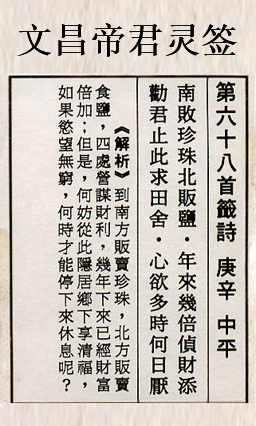 文昌帝君灵签
第六十八首籤詩 庚辛 中平
南敗珍珠北販鹽．年來幾倍偵財添
勸君止此求田舍．心欲多時何日厭
《解析》到南方販賣珍珠，北方販賣
食鹽，四處營謀財利，幾年下來已經財富
倍加；但是，何妨從此隱居鄉下享清福，
如果慾望無窮，何時才能停下來休息呢？